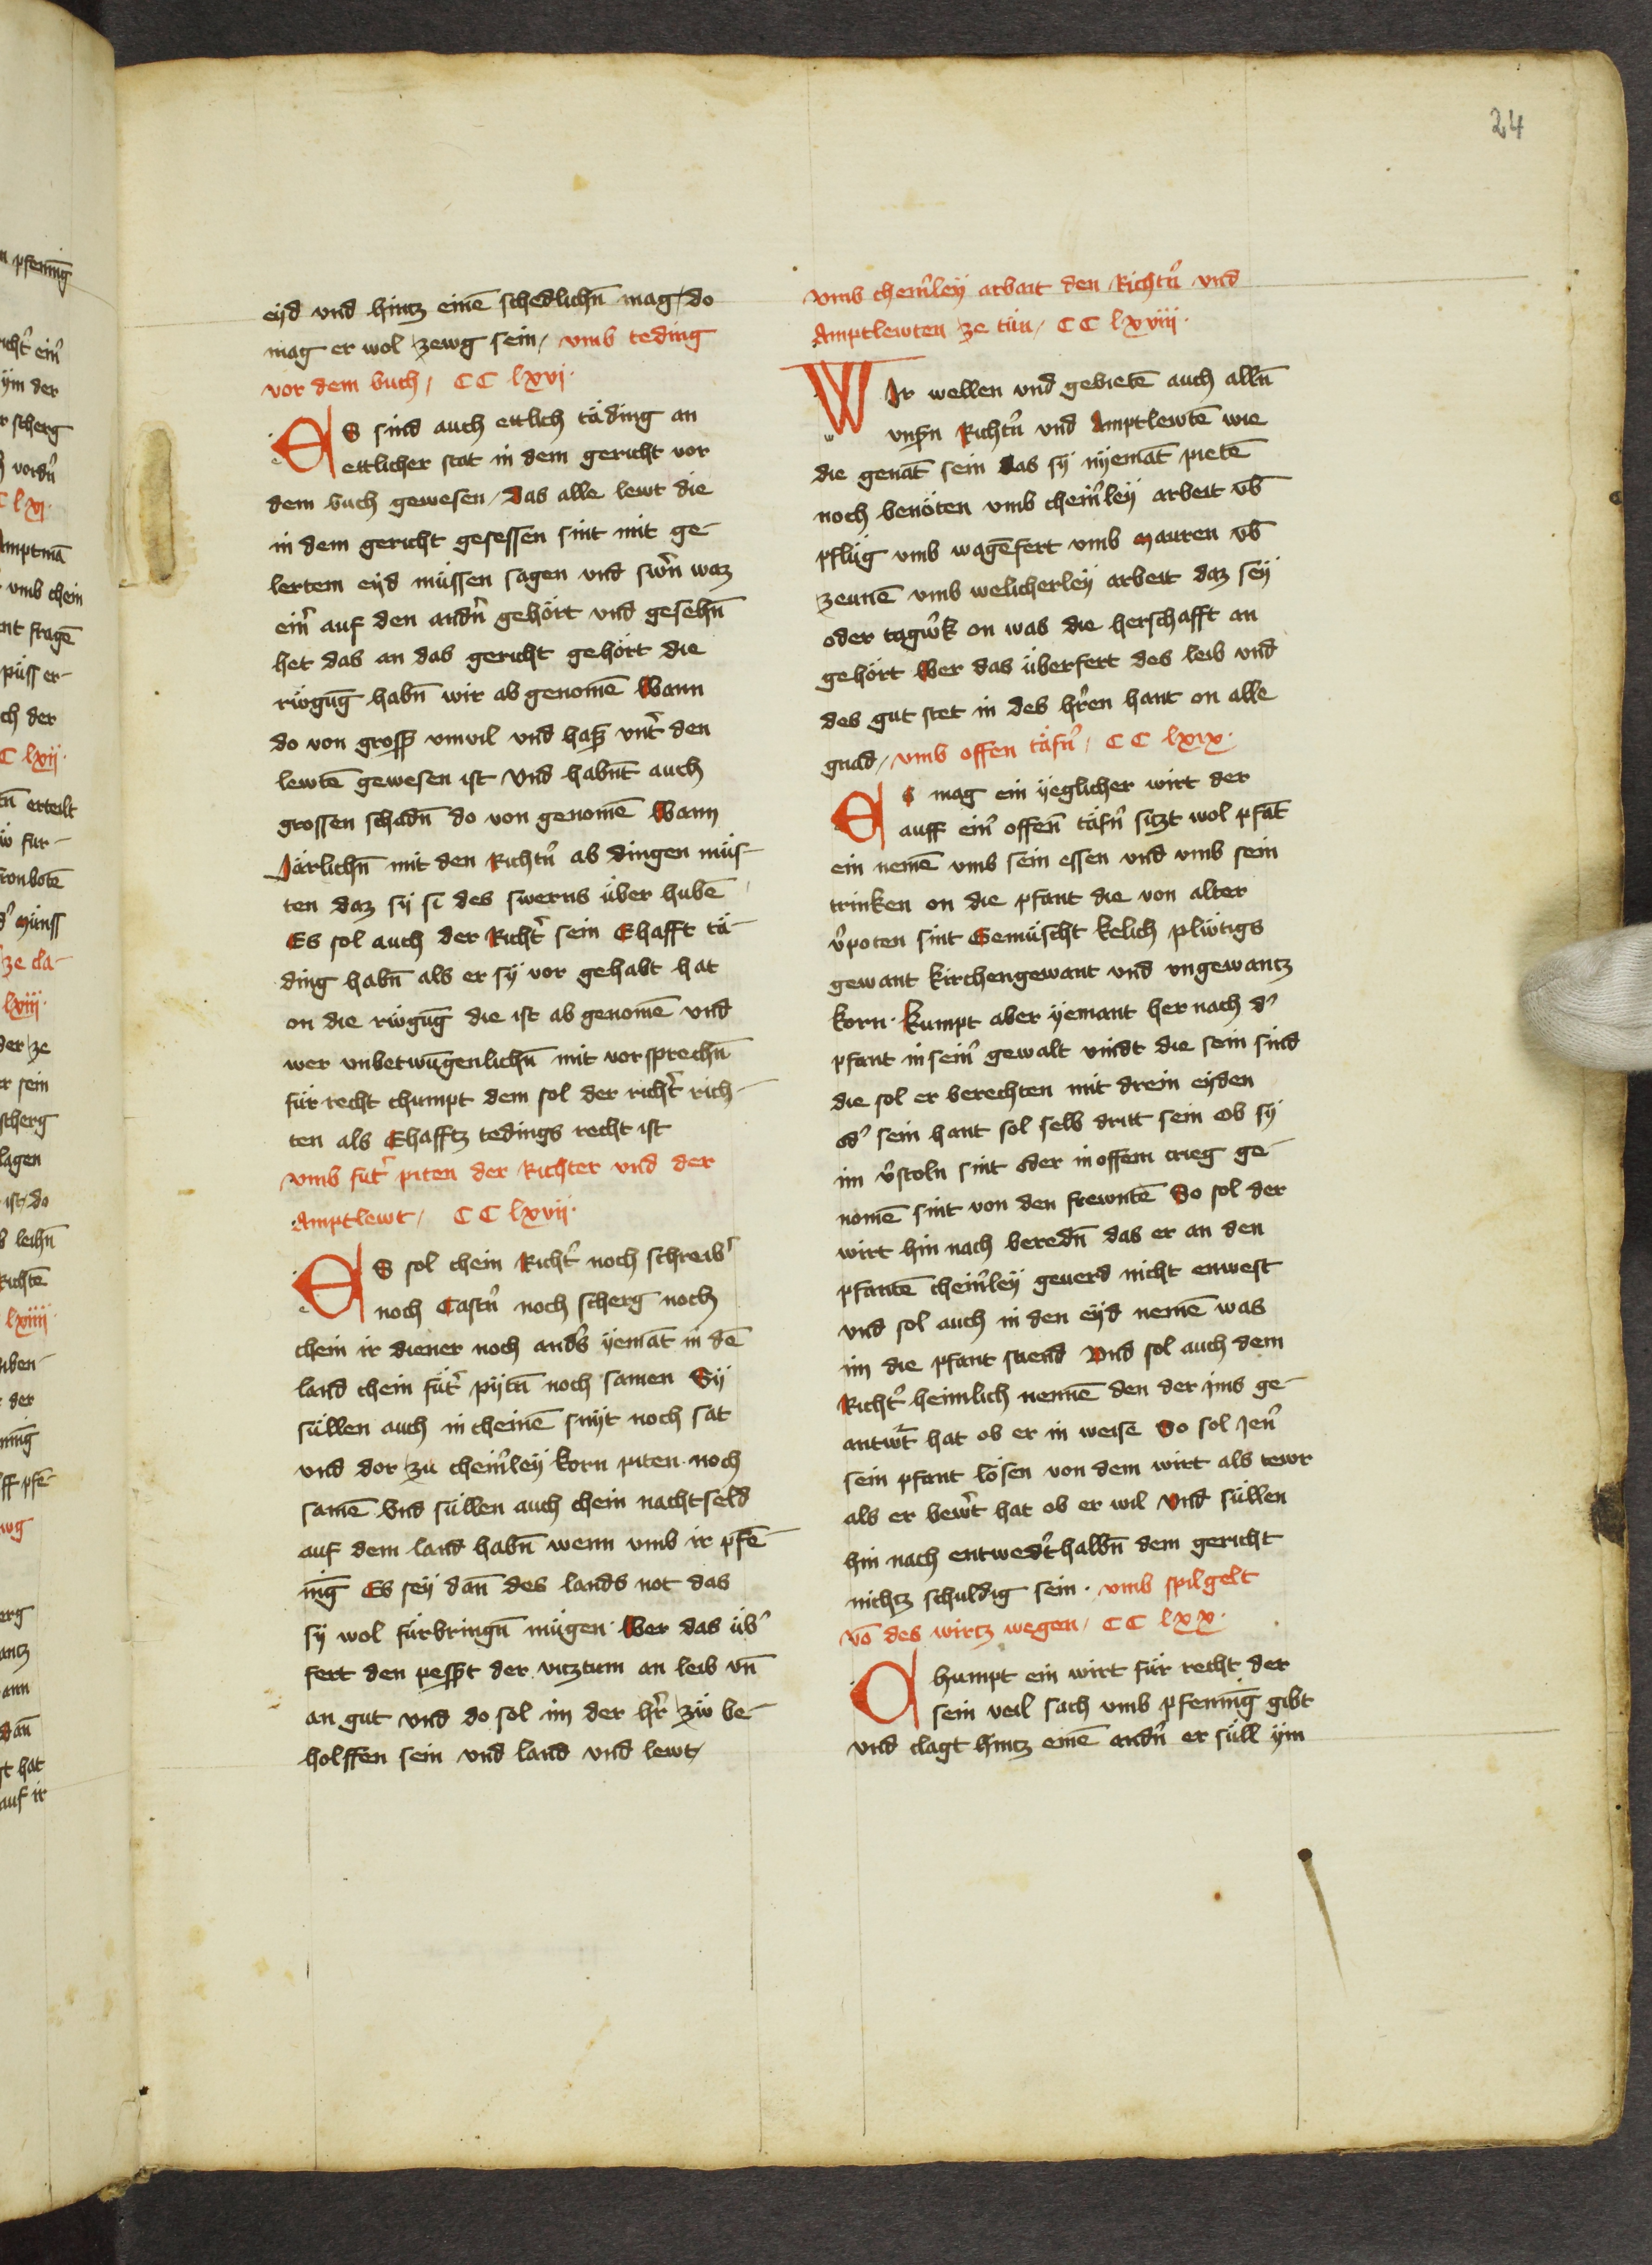 24
eyd vnd hintz einē schedlichn̄ mag / do
mag er wol zewg sein / vmb teding
vor dem buch / CC lxvj ·
ES sind auch ettlich täding an
ettlicher stat in dem gericht vor
dem buch gewesen / das alle lewt die
in dem gericht gesessen sint mit ge-
lertem eyd müssen sagen vnd swͤrn waz
ein̄ auf den andn̄ gehört vnd gesehn̄
het das an das gericht gehört die
rüogūg habn̄ wir ab genomē Wann
do von gross vnwil vnd hass vntͤ den
lewtē gewesen ist Vnd habnt auch
grossen schadn̄ do von genomē Wann
Järlichn̄ mit den Richtn̄ ab dingen müs-
ten daz sy si des swerns über hubē
Es sol auch der Richtͤ sein Ehafft tä-
ding habn̄ als er sy vor gehabt hat
on die rüogūg die ist ab genomē vnd
wer vnbetwūgenlichn̄ mit vorsprechn̄
für recht chumpt dem sol der richtͤ rich-
ten als Ehafftz tedings recht ist
vmb futͤ piten der Richter vnd der
Amptlewt / CC lxvij ·
ES sol chein Richtͤ noch schreibͤ
noch Castn̄ noch scherg noch
chein ir diener noch andͤs yemāt in dē
land chein fütͤ pytn̄ noch samen Sy
süllen auch in cheinē snyt noch sat
vnd dor zu chein̄ley korn piten noch
samē Vnd süllen auch chein nachtseld
auf dem land habn̄ wenn vmb ir pfē-
nīg Es sey dān des lands not das
sy wol fürbringn̄ mügen · Wer das übͤ
fert den pessͤt der vitztum an leib vn̄
an gut vnd do sol im der hrͤ zw be-
holffen sein vnd land vnd lewt /
vmb chein̄ley arbait den Richtn̄ vnd
Amptlewten ze tün / CC lxviij ·
WIr wellen vnd gebietē auch alln̄
vnsn̄ Richtn̄ vnd Amptlewtē wie
die genāt sein das sy nyemāt pietē
noch benöten vmb chein̄ley arbeit vb̄
pflüg vmb wagēfert vmb mauren vb̄
zeunē vmb welicherley arbeit daz sey
oder tagwͤk on was die herschafft an
gehört Wer das überfert des leib vnd
des gut stet in des hrͤen hant on alle
gnad / vmb offen täfn̄ / CC lxix ·
ES mag ein yeglicher wirt der
auff ein̄ offen̄ täfn̄ sitzt wol pfāt
ein nemē vmb sein essen vnd vmb sein
trinken on die pfant die von alter
vͤpoten sint Gemüscht kelich plütigs
gewant kirchengewant vnd vngewantz
korn · kumpt aber yemant her nach dͤ
pfant in sein̄ gewalt vindt die sein sind
die sol er berechten mit drein eyden
odͤ sein hant sol selb dritt sein Ob sy
im vͤstoln sint oder in offem crieg ge-
nomē sint von den frewntē So sol der
wirt hin nach beredn̄ das er an den
pfantē chein̄ley geuerd nicht enwest
vnd sol auch in den eyd nemē was
im die pfant stuend Vnd sol auch dem
Richtͤ heimlich nennē den der ims ge-
antwͤt hat ob er in weise So sol Jen̄
sein pfant lösen von dem wirt als tewr
als er bewͤt hat ob er wil Vnd süllen
hin nach entwedͤthalbn̄ dem gericht
nichtz schuldig sein · vmb spilgelt
vō des wirtz wegen / CC lxx ·
Chumpt ein wirt für recht der
sein veil sach vmb pfennīg gibt
vnd clagt hintz einē andn̄ er süll ym